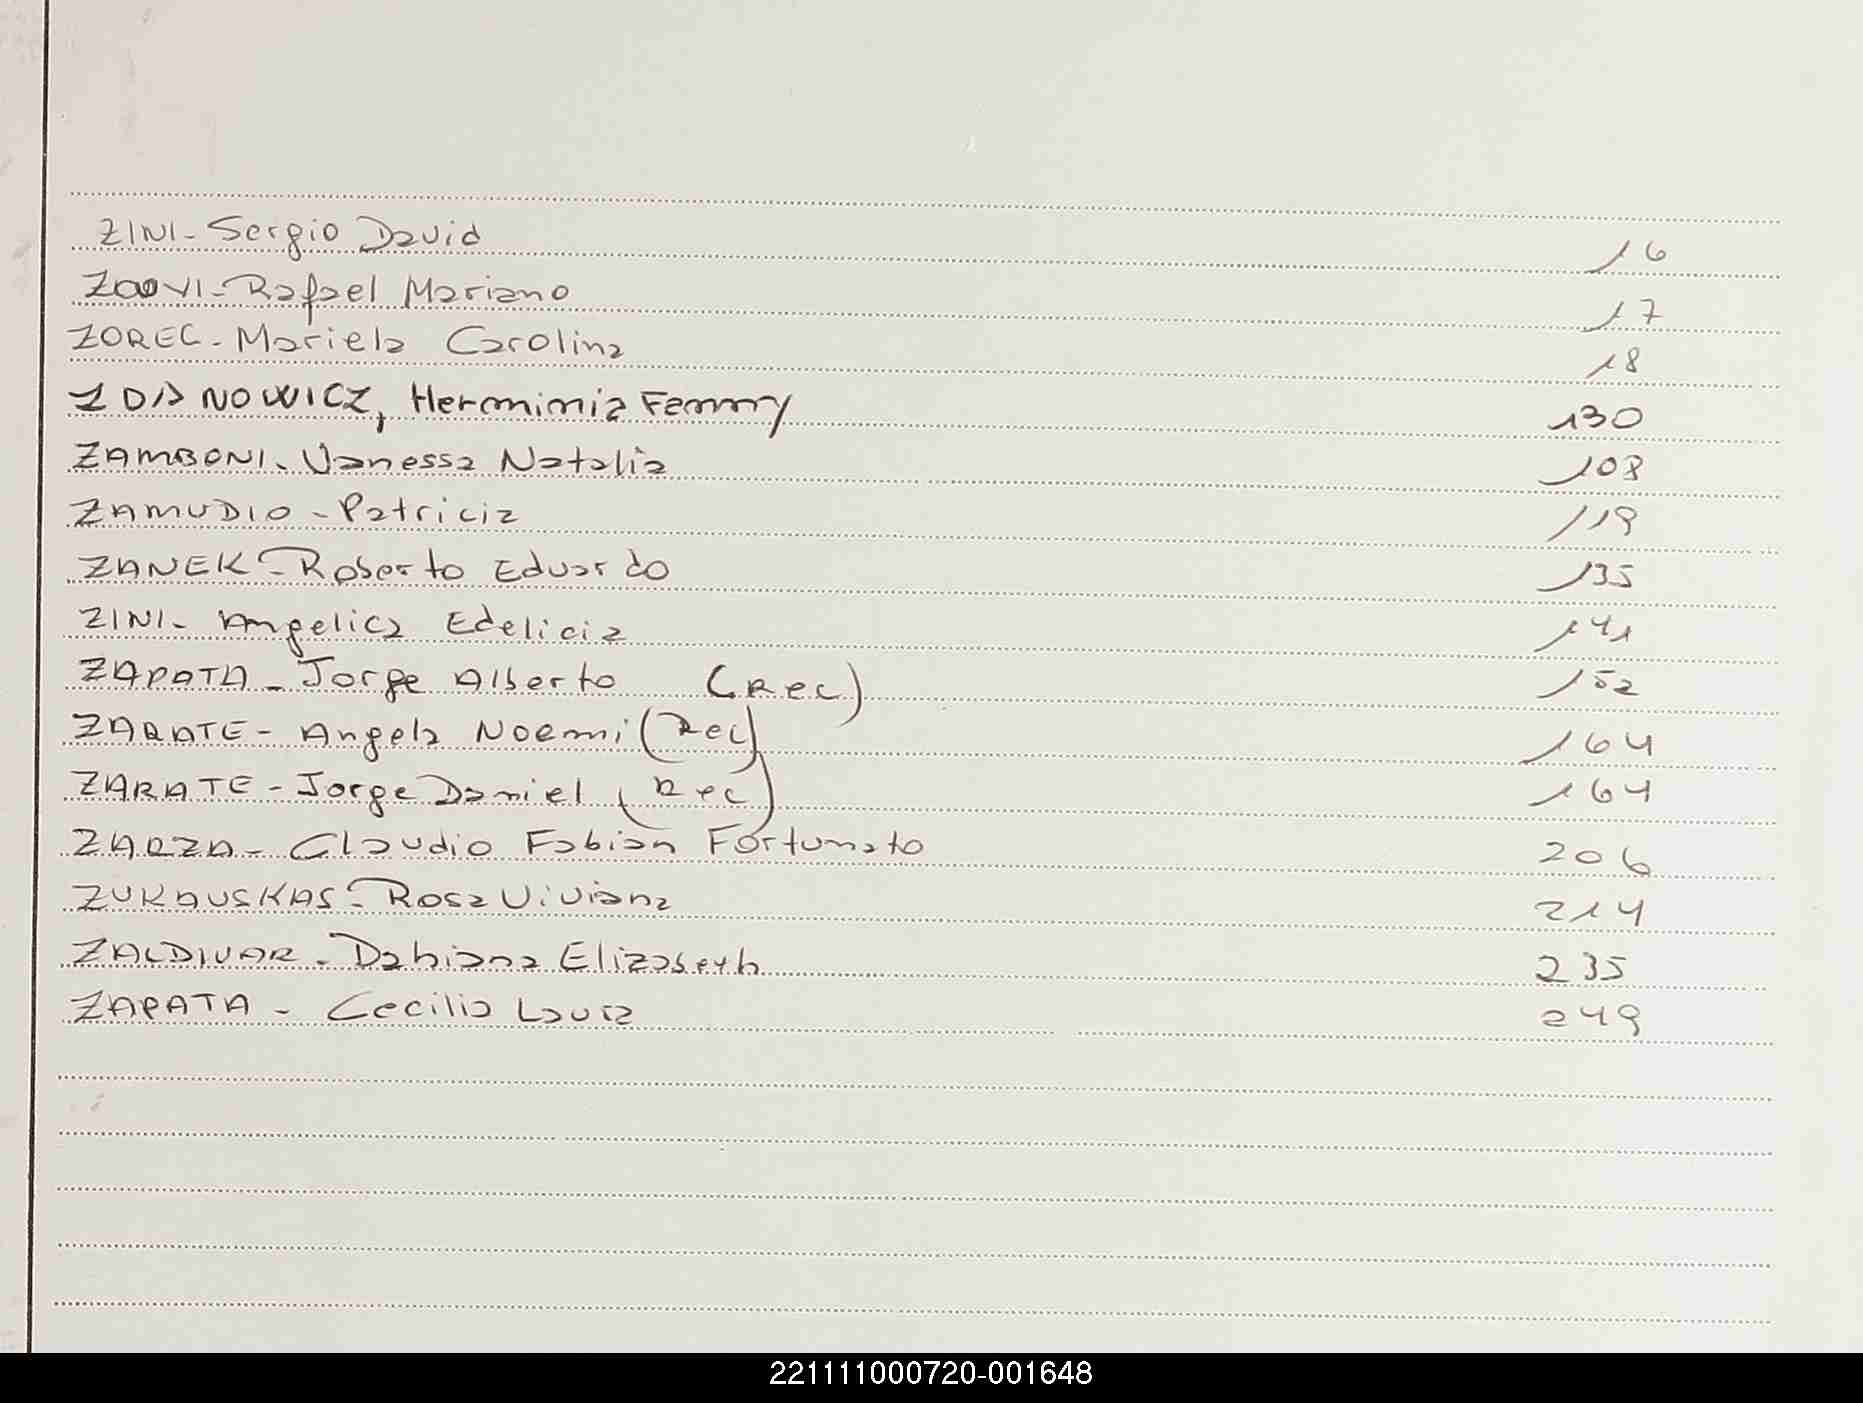 ZINI - Sergio David 16
Rafael Mariano 17
ZOREC - Mariela Carolina 18
ZDANOWICZ, Herminia Fenny 130
ZAMBONI - Vanessa Natalia 108
ZAMUDIO - Patricia 119
ZANEK - Roberto Eduardo 135
ZINI - Angelica Edelicia 141
ZAPATA - Jorge Alberto (Rec) 152
ZARATE - Angela Noemi (Rec) 164
ZARATE - Jorge Daniel (Rec) 164
ZARZA - Claudio Fabian Fortunato 206
ZUKAUSKAS - Rosa Viviana 214
ZALDIVAR - Dahiana Elizabeth 235
ZAPATA - Cecilia Laura 249
221111000720-001648